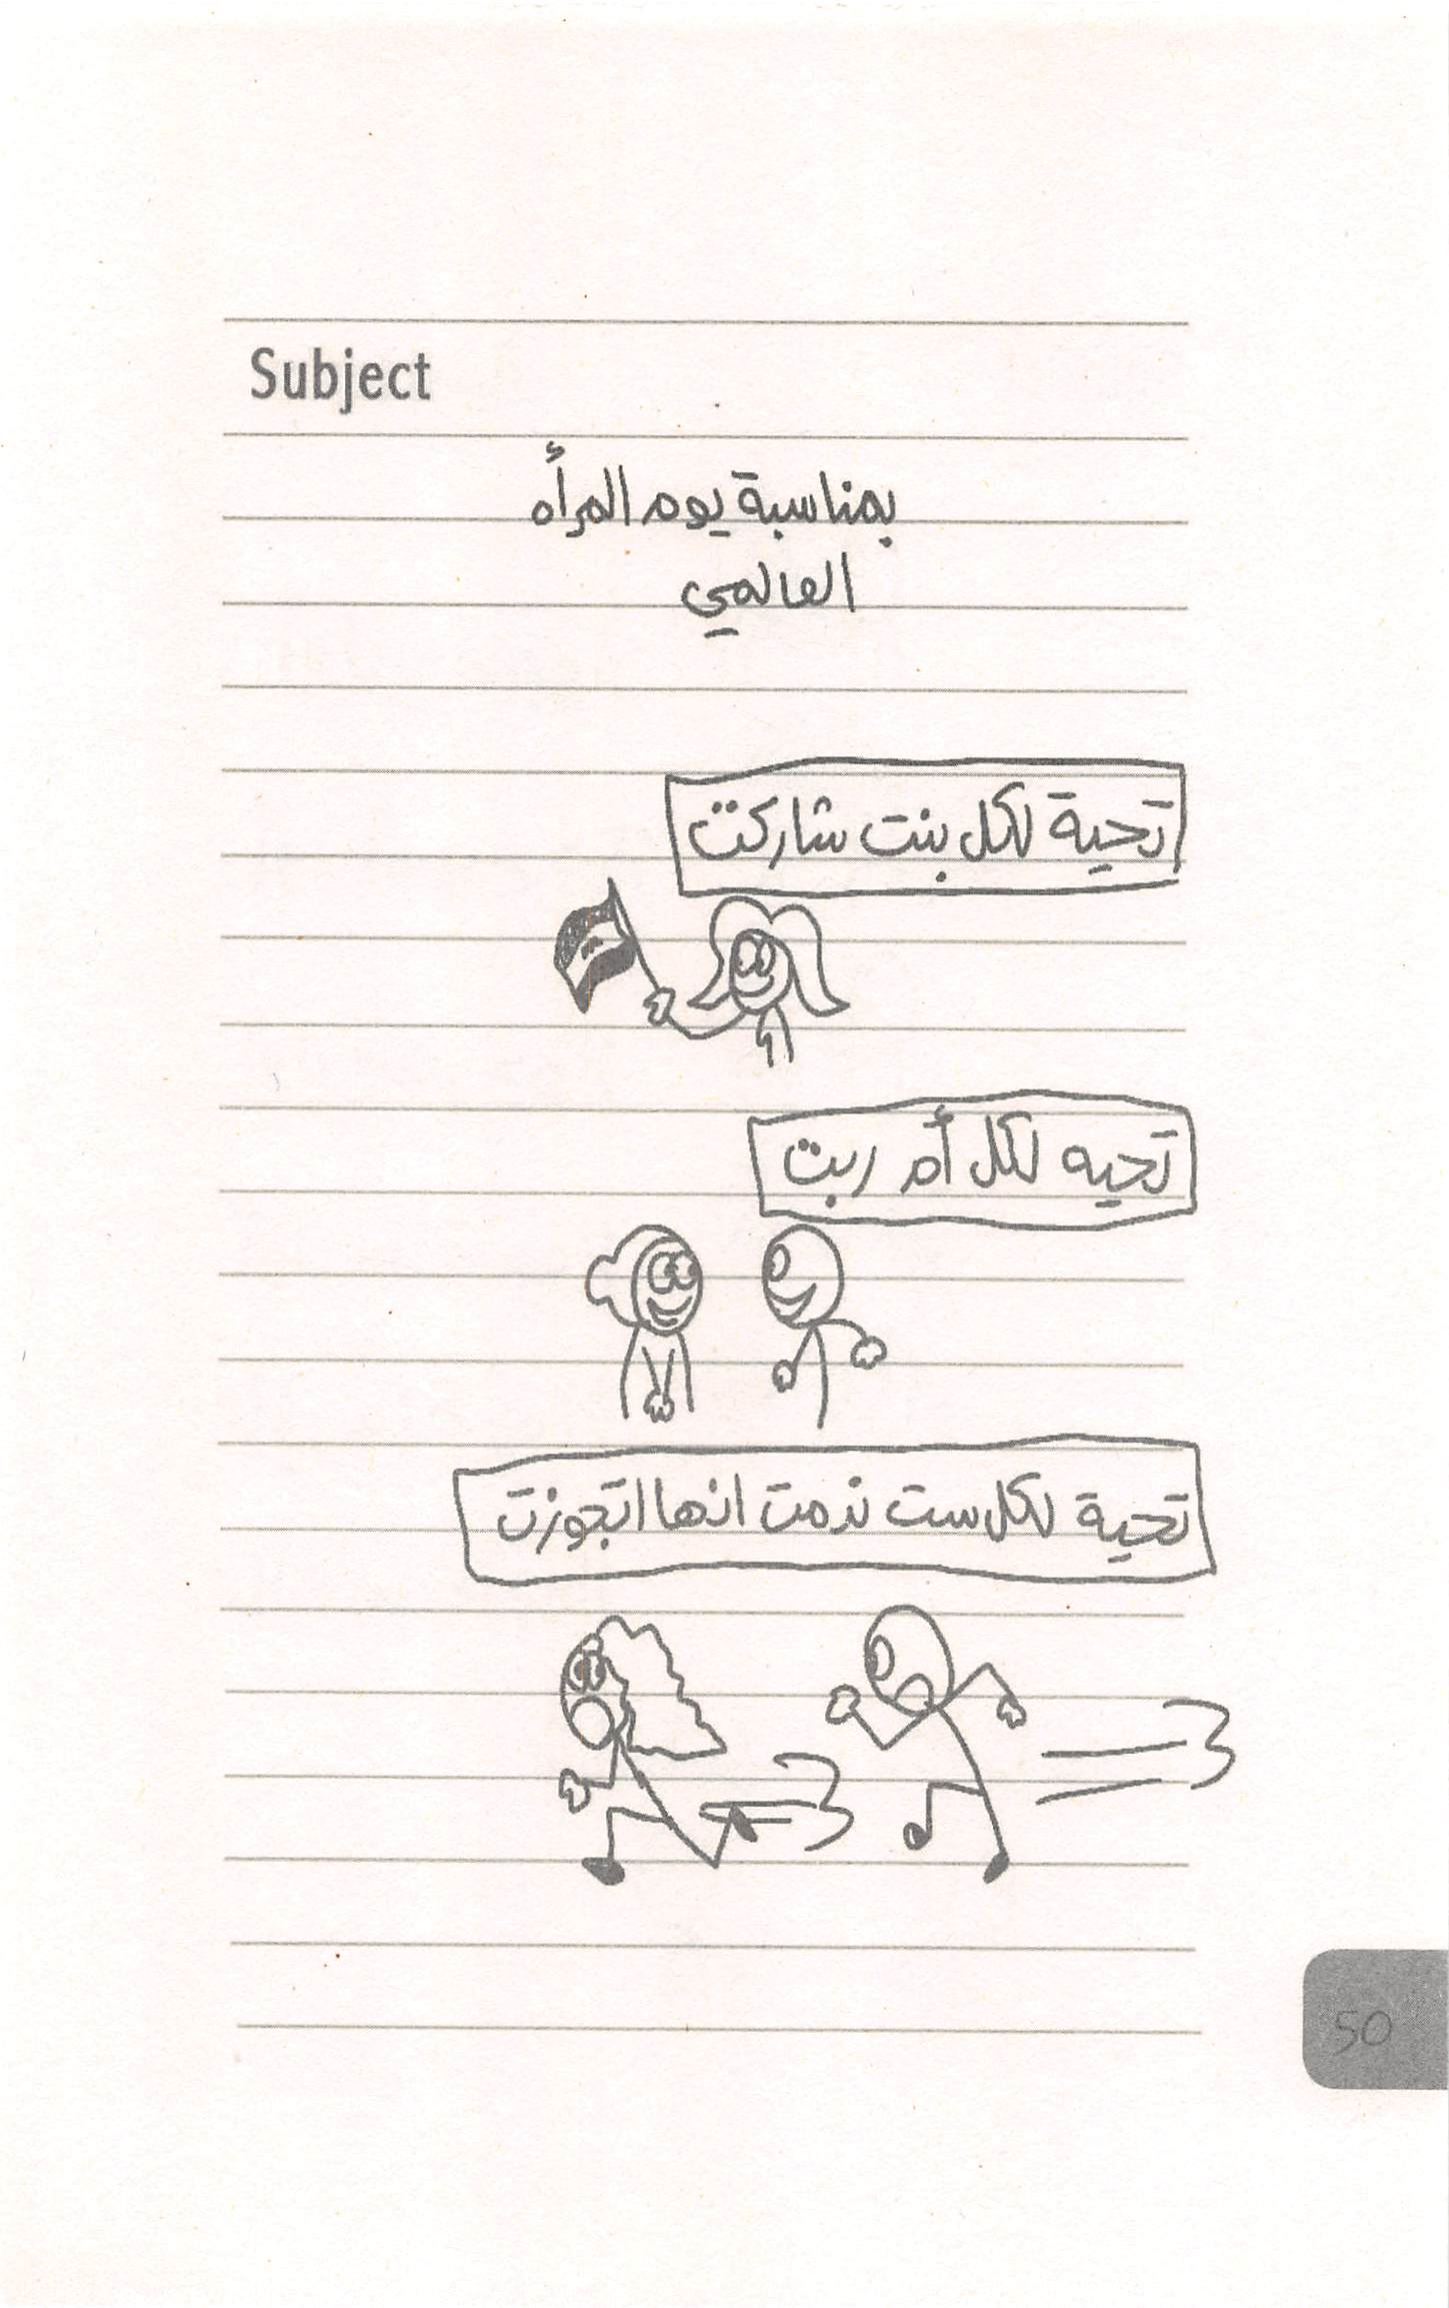 Subject
بمناسبة يوم المرأه
العالمي
تحية لكل بنت شاركت
تحيه لكل أم ربت
تحية لكل ست ندمت انها اتجوزت
50